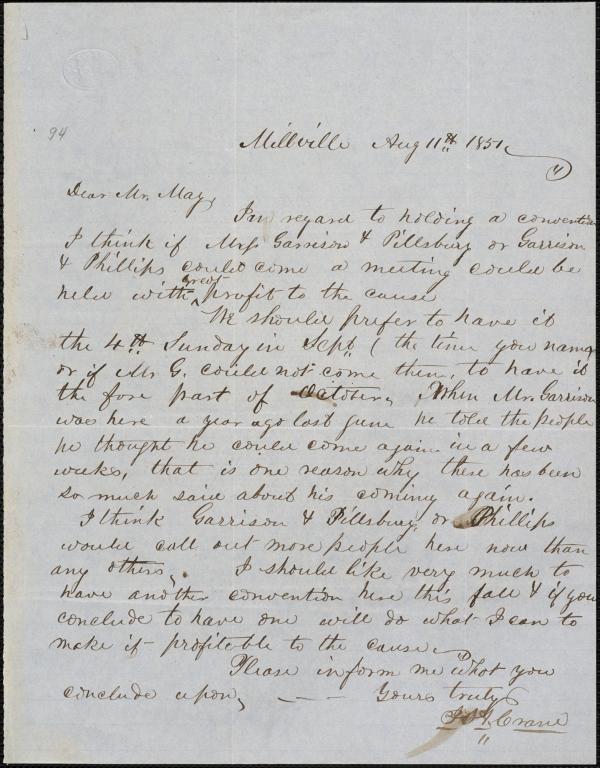 94
Millville Aug 11th 1851
Dear Mr. May,
In regard to holding a convention
I think if Mrss Garrison & Pillsbury or Garrison
& Phillips could come a meeting could be
great
held with profit to the cause
We should prefer to have it
the 4th Sunday in Sept (the time you name)
or if Mr G. could not come then, to have it
the fore part of October, When Mr. Garrison
was here a year ago last June he told the people
he thought he could come again in a few
weeks, that is one reason why there has been
so much said about his coming again.
I think Garrison & Pillsbury or Phillips
would call out more people here now than
any others. I should like very much to
have another convention here this fall & if you
conclude to have one will do what I can to
make it profitable to the cause
Please inform me what you
conclude upon,
Yours truly
Crane